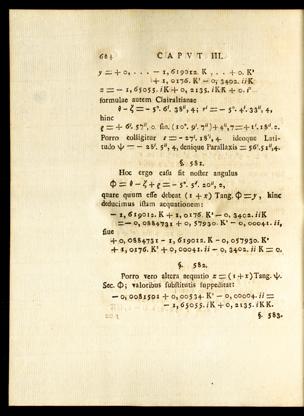 684 CAPUT III.
y = + 0, . . . — 1, 619012. K . . . + 0. K²
+ 1, 0176. K² — 0, 3402. iiK
z = — 1, 65055. iK + 0, 2135. iKK + 0. i³
formulae autem Clairaltianae
θ - ζ = - 5°. 6'. 38'', 4; = - 5°. 4'. 33'', 4,
hinc
Porro colligitur = - 27'. 18'', 4, ideoque Lati-
tudo ψ = — 28'. 5'', 4, denique Parallaxis = 56'. 51'', 4.
§. 581.
Hoc ergo casu fit noster angulus
Φ = θ - ζ + ρ = - 5°. 5'. 20'', 2,
quare quum esse debeat (1 + x) Tang. Φ = y, hinc
deducimus istam aequationem:
— 1, 619012. K + 1, 0176. K² — 0, 3402. iiK
= — 0, 0884731 + 0, 57930. K² — 0, 00041. ii,
siue
+ 0, 0884731 — 1, 619012. K — 0, 057930. K²
+ 1, 0176. K² + 0, 00041. ii — 0, 3402. ii K = 0.
§. 582.
Porro vero altera aequatio z = (1 + x) Tang. ψ.
Sec. Φ; valoribus substitutis suppeditat:
— 0, 0081501 + 0, 00534. K² — 0, 00004. ii =
— 1, 65055. iK + 0, 2135. iKK.
§. 583.